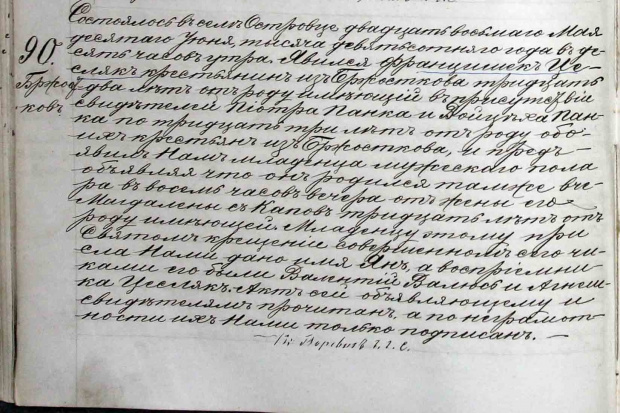 Состоялось въ селѣ Островце двадцать восьмаго Мая
90.
десятаго Іюня, тысяча девятьсотняго года въ де-
сять часовъ утра. Явился Францишекъ Це-
слякъ крестьянинъ изъ Бржосткова тридцать
Бржост-
ковъ
два лѣтъ отъ роду имѣющій въ присутствіи
свидѣтелей Піотра Панка и Войцѣха Пан-
ка по тридцать три лѣтъ отъ роду обо-
ихъ крестьянъ изъ Бржосткова, и предъ-
явилъ Намъ младенца мужескаго пола
объявляя что онъ родился тамже вче-
ра въ восемь часовъ вечера отъ жены его
Магдалены съ Каповъ тридцать лѣтъ отъ
роду имѣющей. Младенцу этому при
Святомъ крещеніи совершенномъ сего чи-
сла Нами дано имя Янъ, а воспріемни-
ками его были Валентій Валюсь и Агнеш-
ка Цеслякъ. Актъ сей объявляющему и
свидѣтелямъ прочитанъ, а по неграмот-
ности ихъ Нами только подписанъ. —